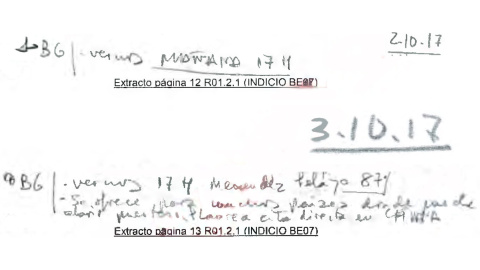 2.10.17
BG | - vernos MAÑANA 17 H
Extracto página 12 R01.2.1 (INDICIO BE07)
3.10.17
BG | - vernos 17 H Menendez Pelayo 87
- Se ofrece para muchos países donde puede
abrir puertas. Plantea cita directa en CHINA
Extracto página 13 R01.2.1 (INDICIO BE07)